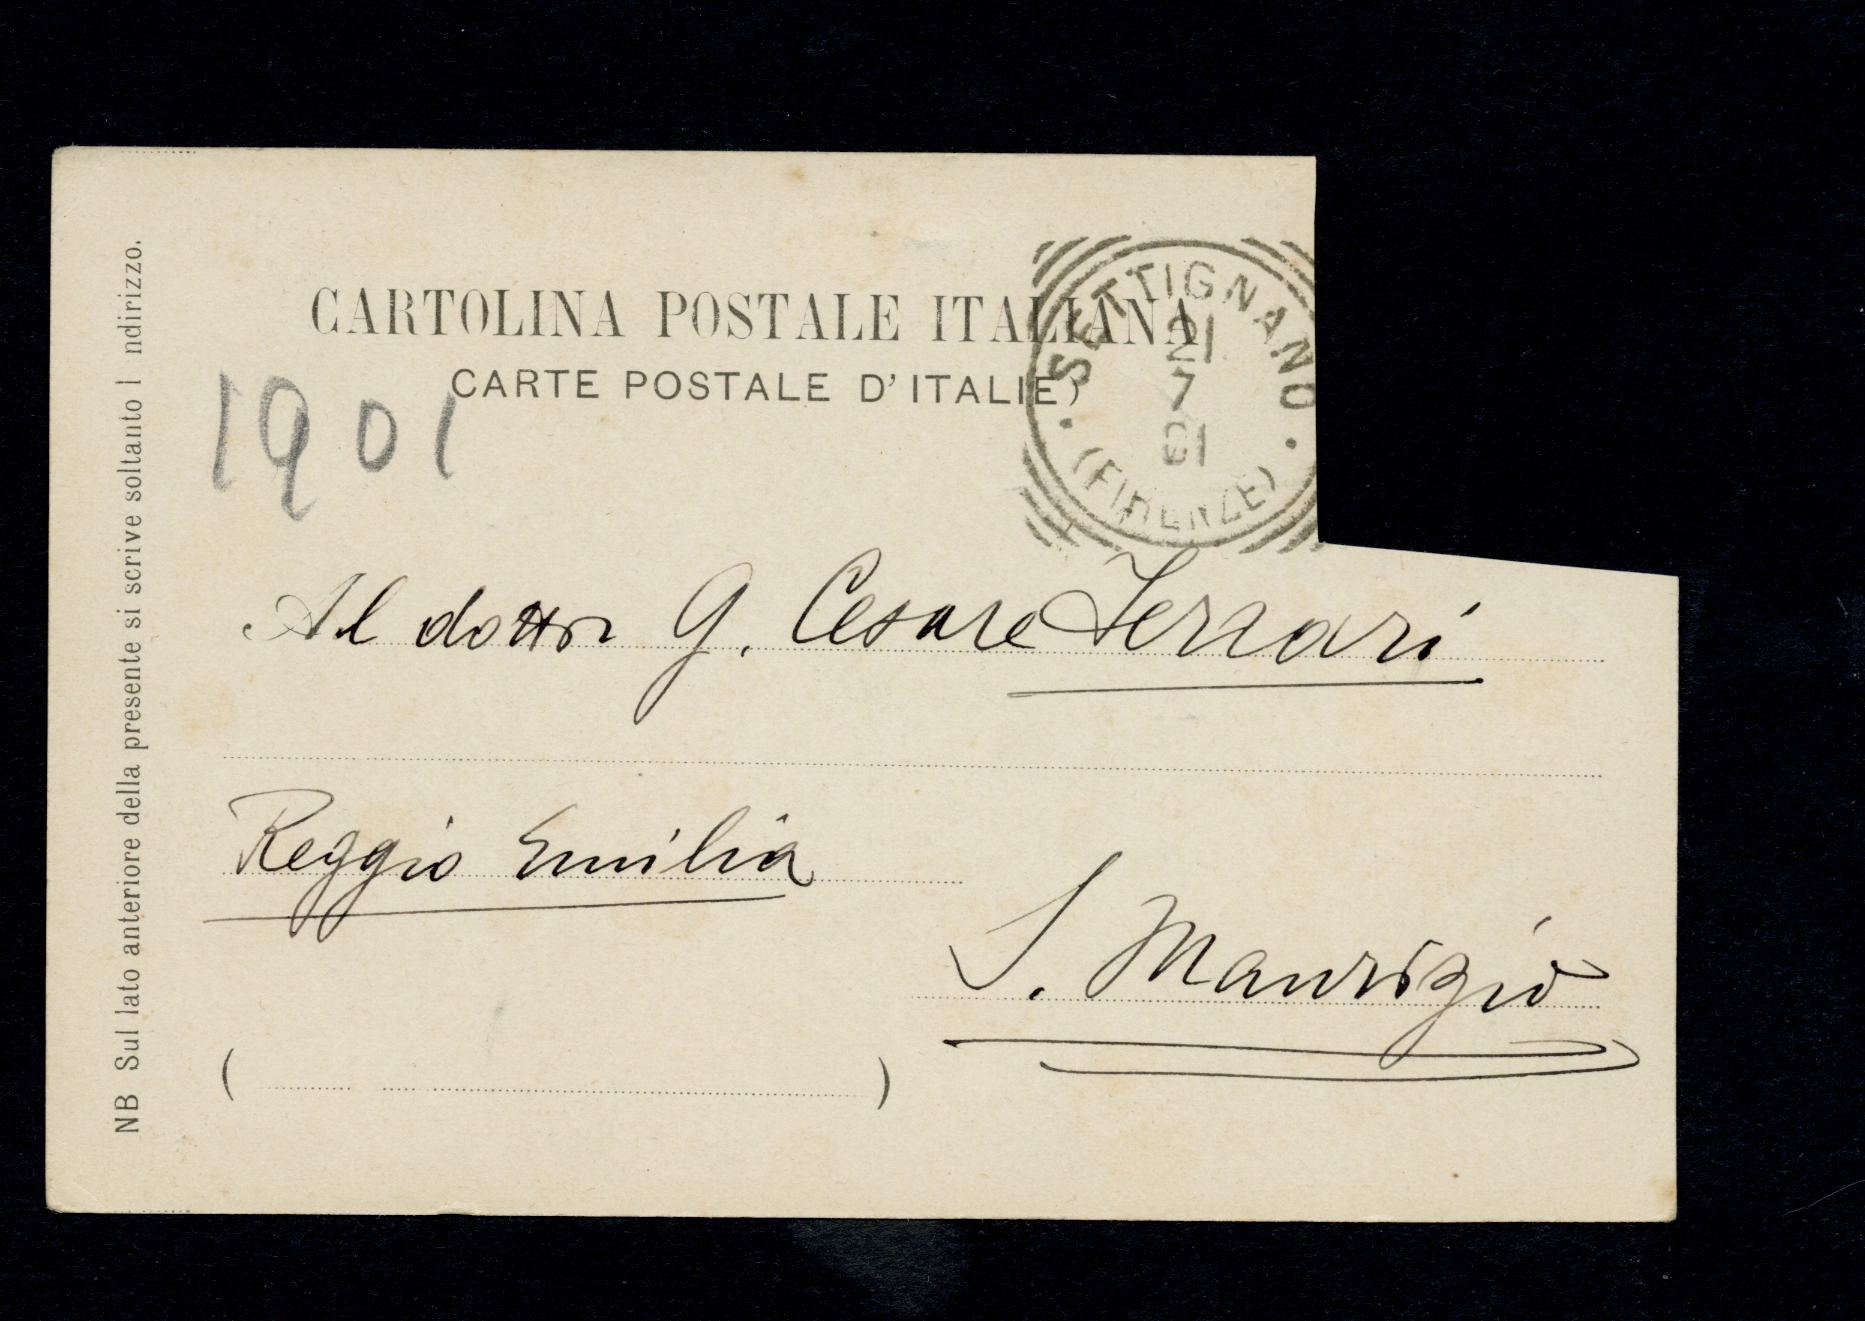 CARTOLINA POSTALE ITALIANA
CARTE POSTALE D'ITALIE)
SETTIGNANO
21
7
01
(FIRENZE)
1901
Al dottor G. Cesare Ferrari
Reggio Emilia
S. Maurizio
( )
NB Sul lato anteriore della presente si scrive soltanto l ndirizzo.